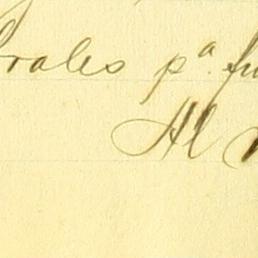 rales pª
Al